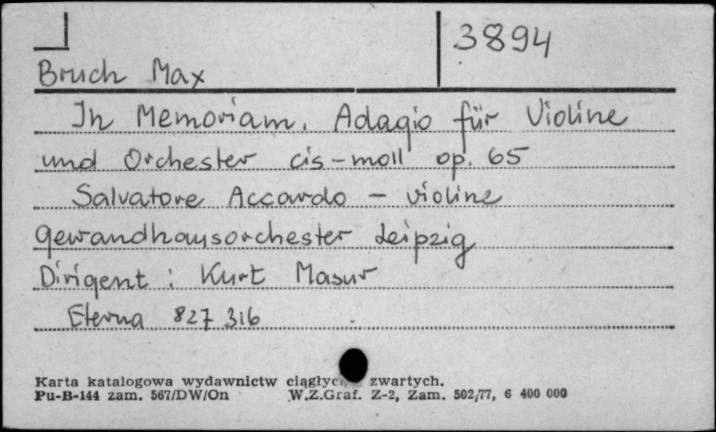 3894
Bruch Max
In Memoriam. Adagio für Violine
und Orchester cis-moll op. 65
Salvatore Accardo - violine
Gewandhausorchester Leipzig
Dirigent: Kurt Masur
Eterna 827 316
Karta katalogowa wydawnictw ciągłych zwartych.
Pu-B-144 zam. 567/DW/On W.Z.Graf. Z-2, Zam. 502/77, 6 400 000